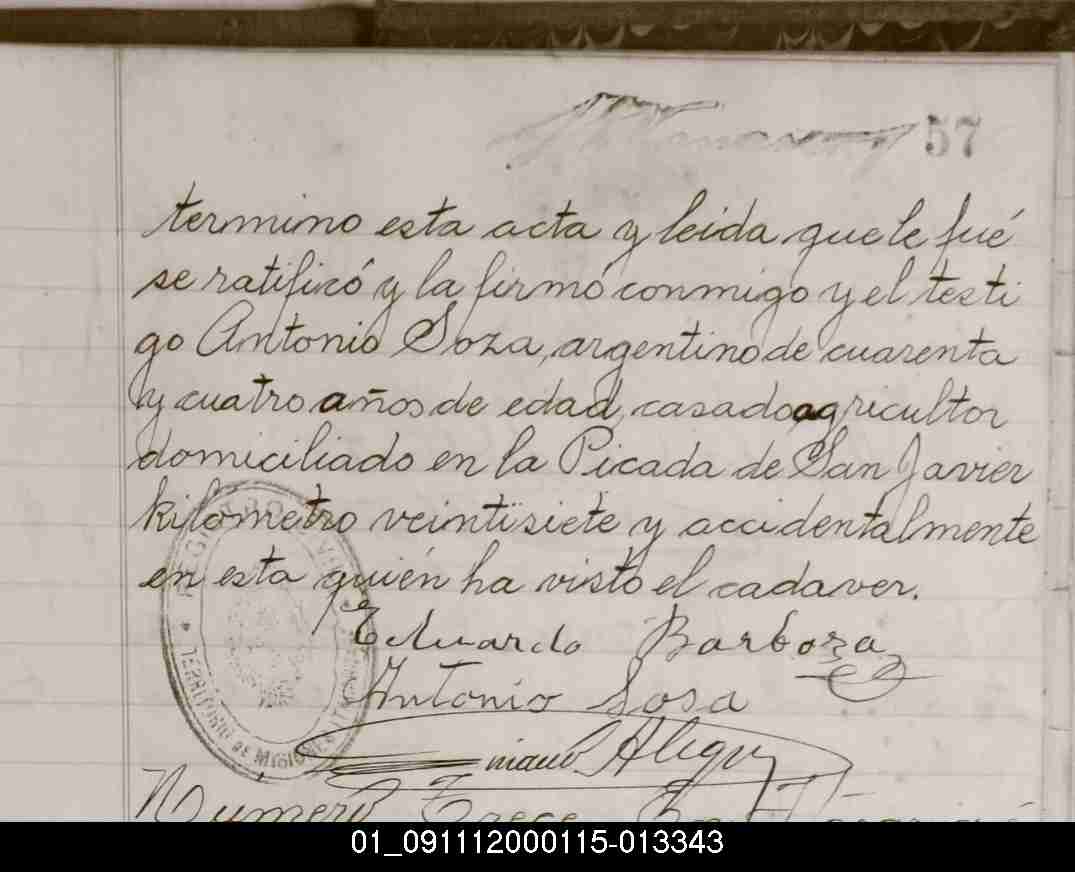 57
termino esta acta y leida que le fué
se ratificó y la firmó conmigo y el testi
go Antonio Soza, argentino de cuarenta
y cuatro años de edad, casado agricultor
domiciliado en la Picada de San Javier
kilometro veintisiete y accidentalmente
en esta quién ha visto el cadaver.
Eduardo Barboza
Antonio Sosa
REGISTRO CIVIL
TERRITORIO DE MISIONES
Numero Trece
01_091112000115-013343